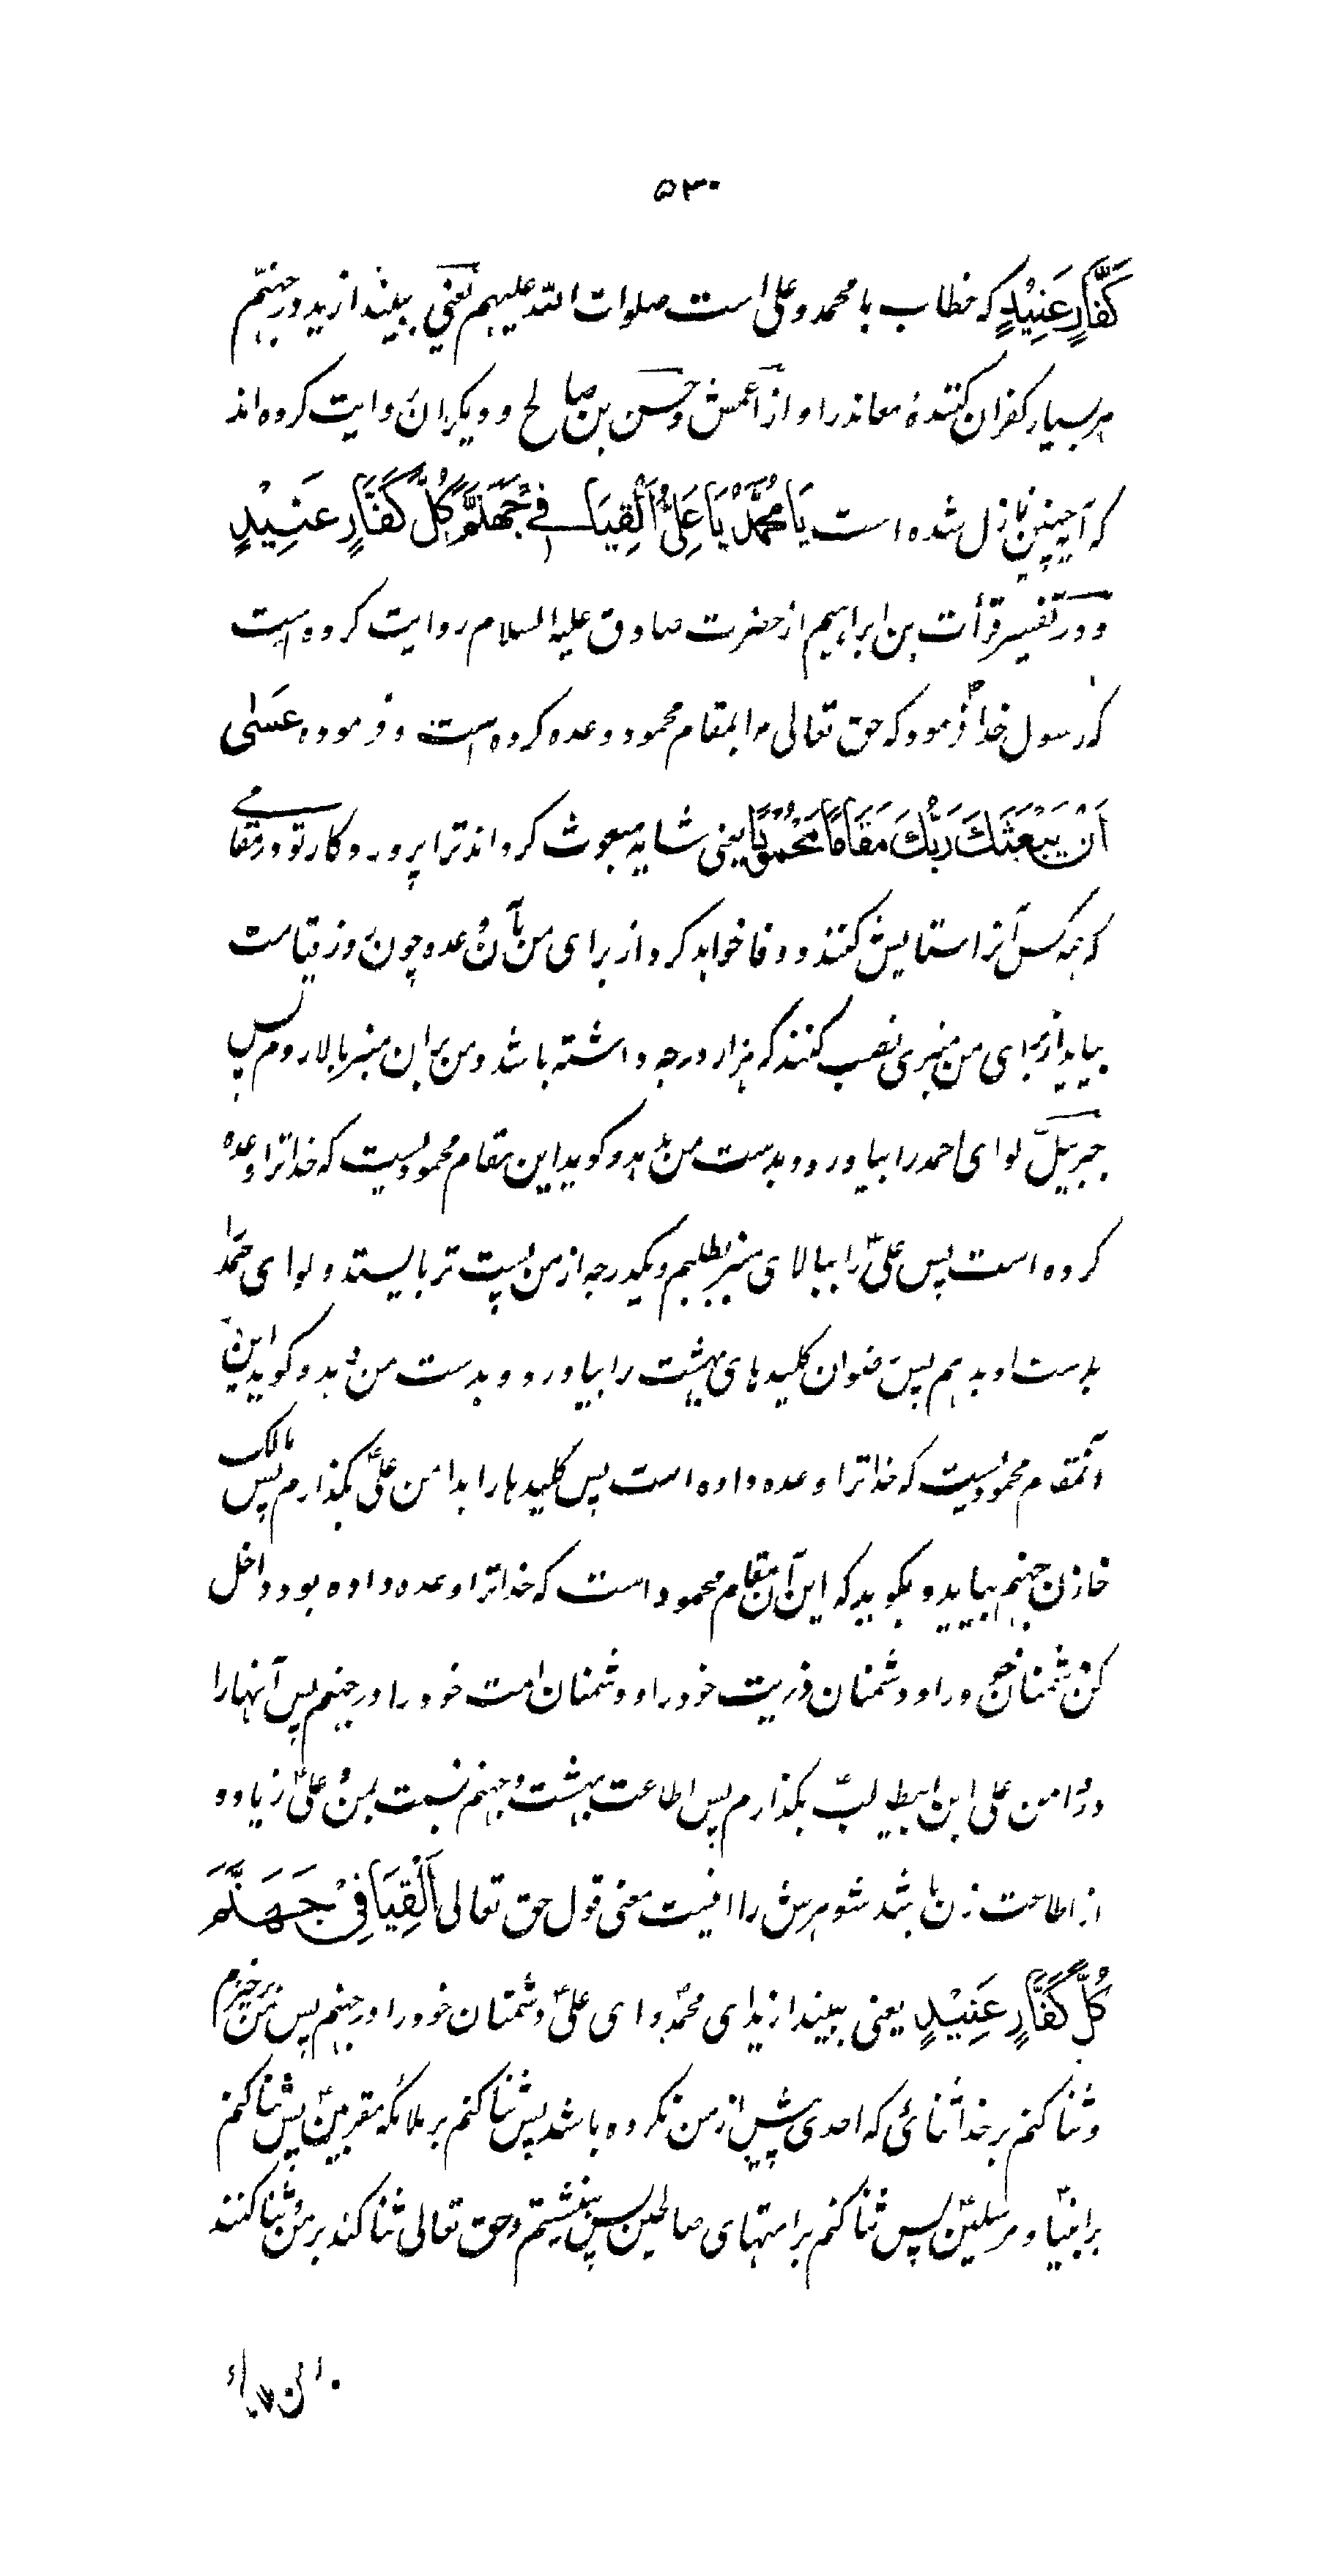 ۵۳۰
كَفَّارٍ عَنِيْدٍ که خطاب با محمد و علی است صلوات الله علیهم یعنی بیندازید در جهنم
هر بسیار کفران کنندهٔ معاند را و از اعمش و حسن بن صالح و دیگران روایت کرده اند
که آیه چنین نازل شده است يَا مُحَمَّدُ يَا عَلِيُّ اَلْقِيَا فِي جَهَنَّمَ كُلَّ كَفَّارٍ عَنِيْدٍ
و در تفسیر فرأت بن ابراهیم از حضرت صادق علیه السلام روایت کرده است
که رسول خدا ؐ فرمود که حق تعالی مرا بمقام محمود وعده کرده است و فرموده عَسٰى
اَنْ يَبْعَثَكَ رَبُّكَ مَقَامًا مَحْمُوْدًا یعنی شاید مبعوث کرداند ترا پروردکار تو در مقامی
که همه کس آنرا ستایش کنند و وفا خواهد کرد از برای من بآن وعده چون روز قیامت
بیاید از برای من منبری نصب کنند که هزار درجه داشته باشد و من بر ان منبر بالا روم پس
جبرییلؑ لوای احمد را بیاورد و بدست من بدهد و کوید این مقام محمودیست که خدا ترا وعده
کرده است پس علیؑ را ببالای منبر بطلبم و یکدرجه از من پست تر بایستد و لوای حمد را
بدست او بدهم پس رضوان کلیدهای بهشت را بیاورد و بدست من بدهد و کوید این
آنمقام محمودیست که خدا ترا وعده داده است پس کلیدها را بدامن علیؑ بگذارم پس مالک
خازن جهنم بیاید و بکوید که این آن مقام محمود است که خدا ترا وعده داده بود داخل
کن دشمنان خود را و دشمنان ذریت خود را و دشمنان امت خود را در جهنم پس آنها را
در دامن علی ابن ابیطالبؑ بگذارم پس اطاعت بهشت و جهنم نسبت بمن و علیؑ زیاده
از اطاعت زن باشد شوهرش را اینست معنی قول حق تعالی اَلْقِيَا فِيْ جَهَنَّمَ
كُلَّ كَفَّارٍ عَنِيْدٍ یعنی بیندازید ای محمدؐ و ای علیؑ دشمنان خود را در جهنم پس من برخیزم
و ثنا کنم بر خدا ثنائی که احدی پیش از من نکرده باشد پس ثنا کنم بر ملائکه مقربینؑ پس ثنا کنم
بر انبیاؑ و مرسلینؑ پس ثنا کنم بر امتهای صالحین پس بنشینم و حق تعالی ثنا کند بر من و ثنا کنند